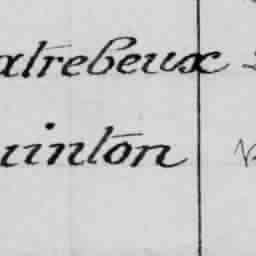 atrebeux
uinton